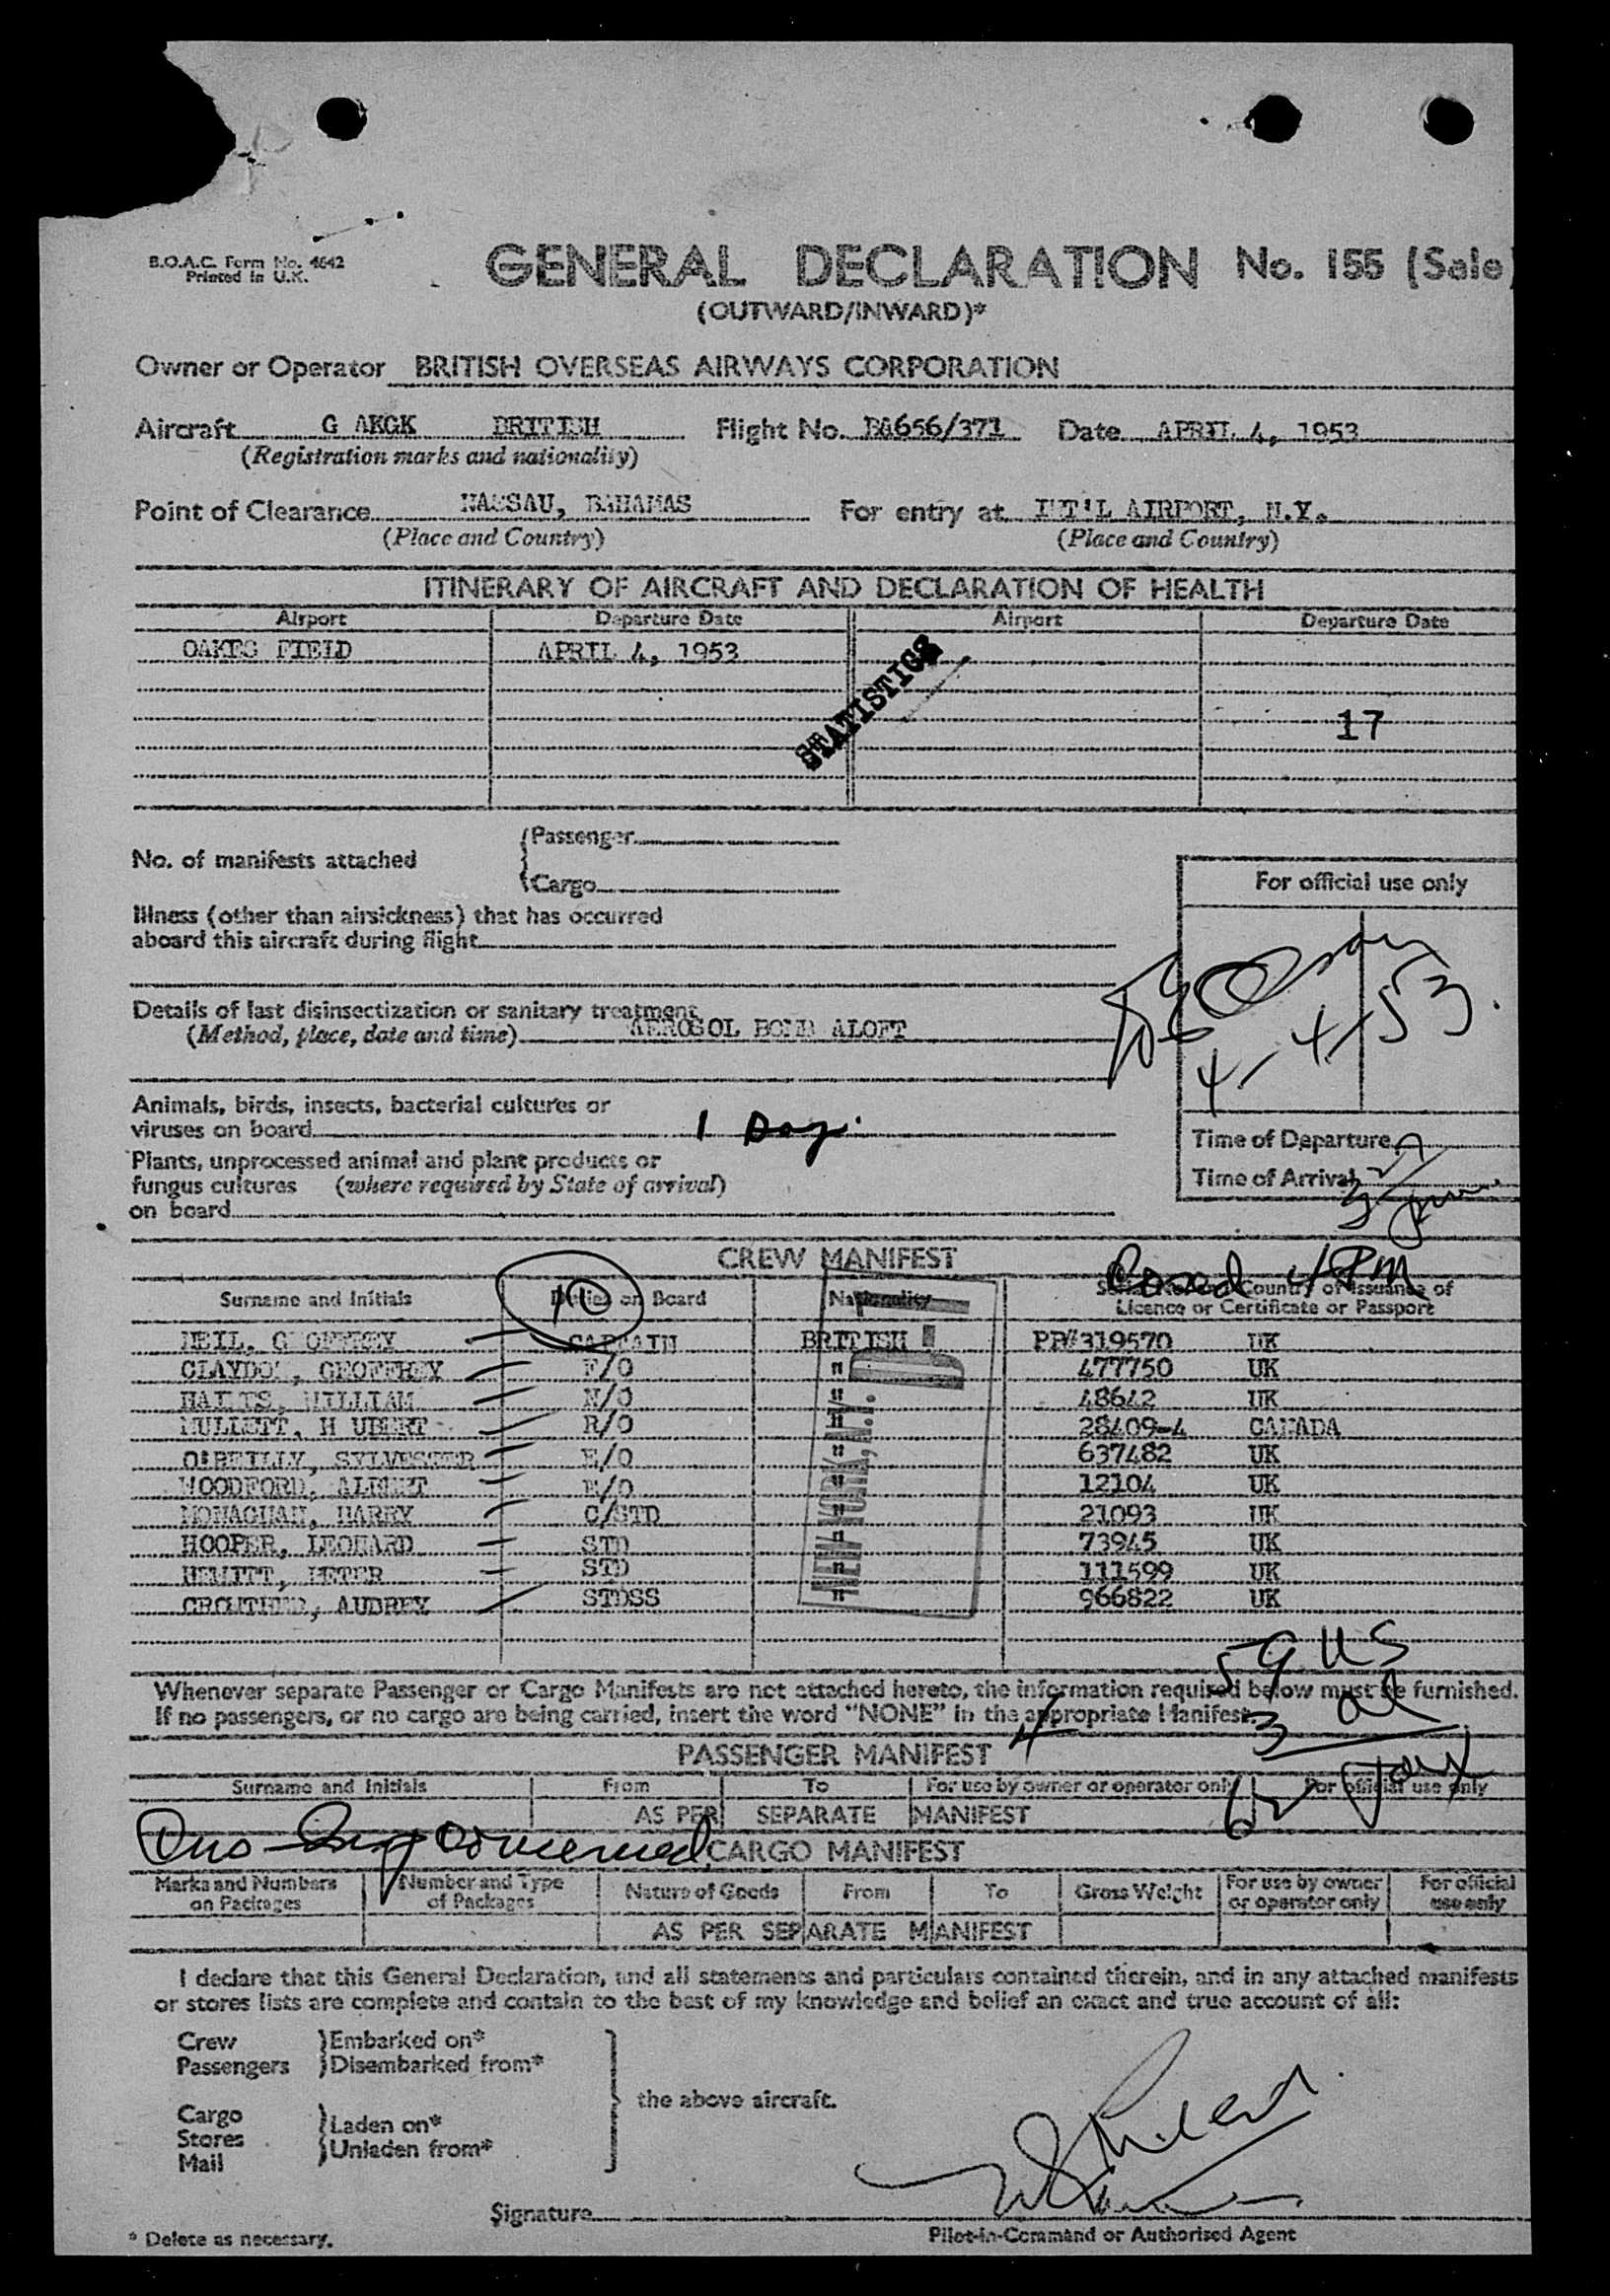 B.O.A.C. Form No. 4642
Printed in U.K.
GENERAL DECLARATION No. 155 (Sale)
(OUTWARD/INWARD)*
Owner or Operator BRITISH OVERSEAS AIRWAYS CORPORATION
Aircraft G AKGK BRITISH Flight No. BA656/371 Date APRIL 4, 1953
(Registration marks and nationality)
Point of Clearance NASSAU, BAHAMAS For entry at INT'L AIRPORT, N.Y.
(Place and Country) (Place and Country)
ITINERARY OF AIRCRAFT AND DECLARATION OF HEALTH
Airport Departure Date Airport Departure Date
OAKES FIELD APRIL 4, 1953
STATISTICS
17
No. of manifests attached
Passenger
Cargo
For official use only
Illness (other than airsickness) that has occurred
aboard this aircraft during flight
4-4-53.
Details of last disinsectization or sanitary treatment
(Method, place, date and time) AEROSOL BOMB ALOFT
Animals, birds, insects, bacterial cultures or
viruses on board 1 Dog.
Time of Departure
Plants, unprocessed animal and plant products or
fungus cultures (where required by State of arrival)
on board
Time of Arrival
CREW MANIFEST
4PM
10
Surname and Initials Duties on Board Nationality Serial No. and Country of Issuance of
Licence or Certificate or Passport
NEIL, GEOFFREY CAPTAIN BRITISH PP#319570 UK
CLAYDON, GEOFFREY F/O " 477750 UK
WILLIAM N/O " 48642 UK
MULLETT, H UBERT R/O " 28409-4 CANADA
O'REILLY, SYLVESTER E/O " 637482 UK
WOODFORD, ALBERT E/O " 12104 UK
MONAGHAN, HARRY C/STD " 21093 UK
HOOPER, LEONARD STD " 73945 UK
HEWITT, PETER STD " 111599 UK
CROUTHER, AUDREY STDSS " 966822 UK
NEW YORK, N.Y.
59 US
Whenever separate Passenger or Cargo Manifests are not attached hereto, the information required below must be furnished.
If no passengers, or no cargo are being carried, insert the word "NONE" in the appropriate Manifest.
3 al
PASSENGER MANIFEST
62
Surname and Initials From To For use by owner or operator only For official use only
AS PER SEPARATE MANIFEST
CARGO MANIFEST
Marks and Numbers on Packages Number and Type of Packages Nature of Goods From To Gross Weight For use by owner or operator only For official use only
AS PER SEPARATE MANIFEST
I declare that this General Declaration, and all statements and particulars contained therein, and in any attached manifests
or stores lists are complete and contain to the best of my knowledge and belief an exact and true account of all:
Crew Embarked on*
Passengers Disembarked from*
the above aircraft.
Cargo Laden on*
Stores Unladen from*
Mail
Signature
* Delete as necessary.
Pilot-in-Command or Authorised Agent